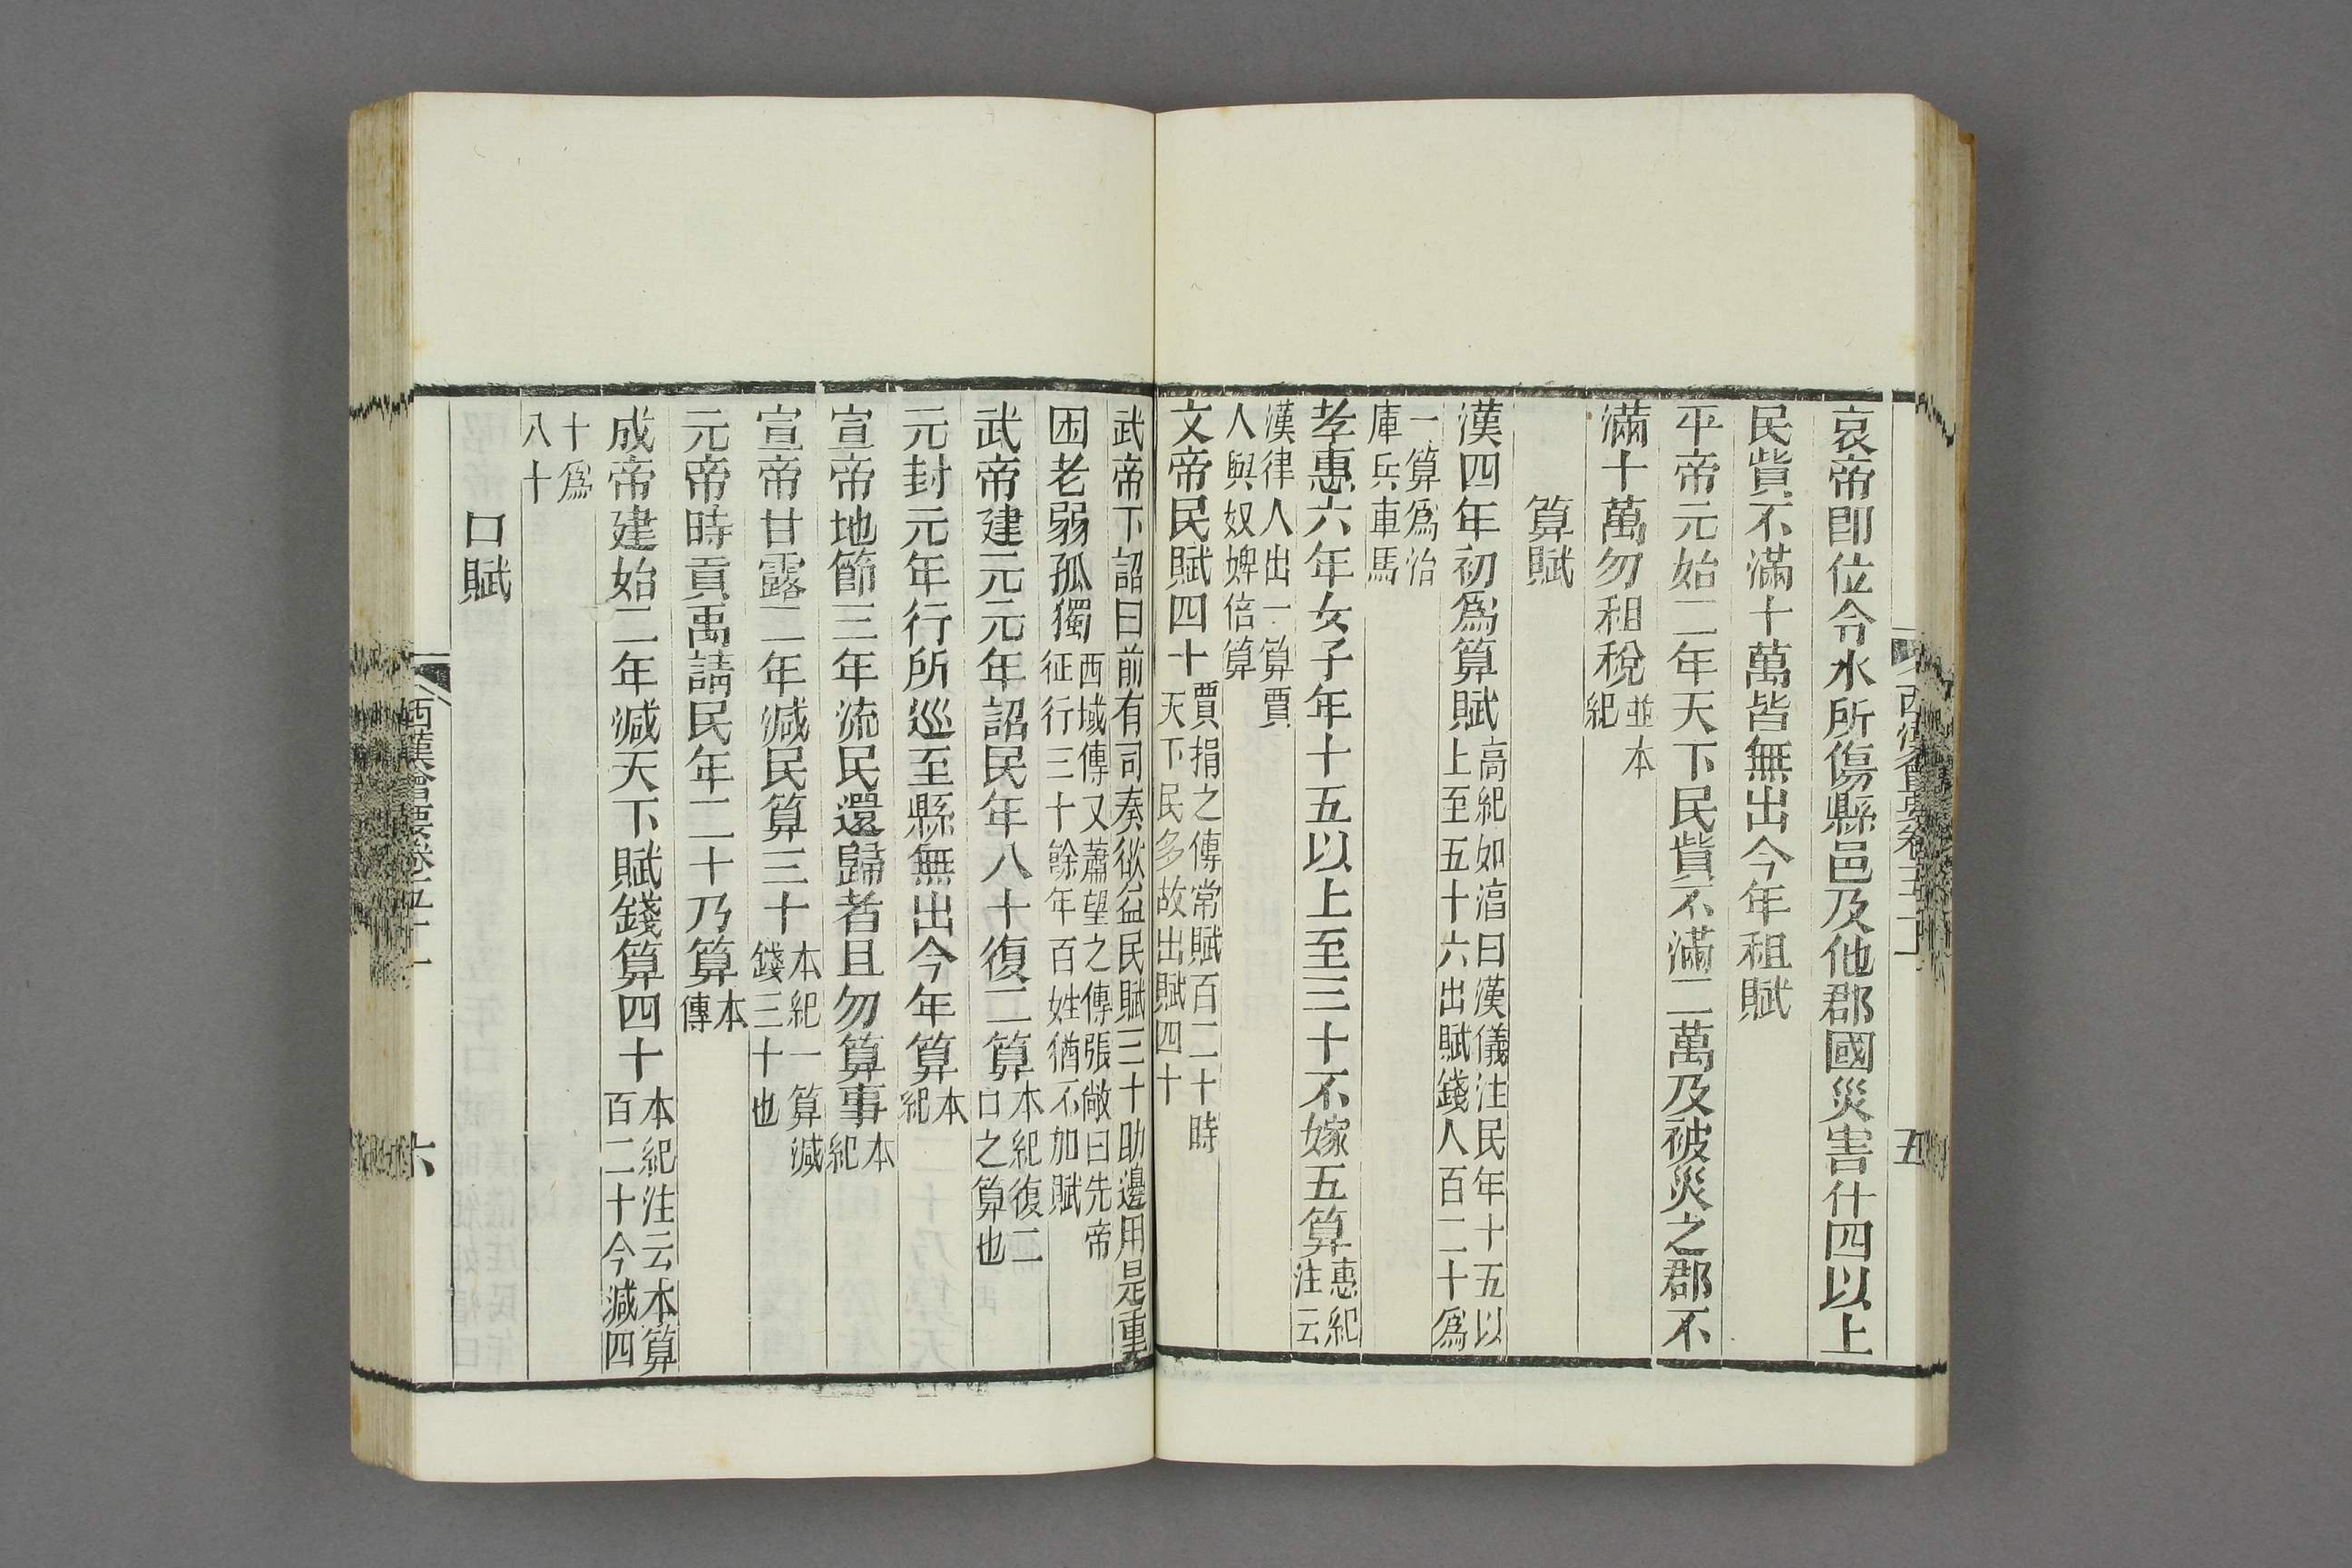 哀帝卽位令水所傷縣邑及他郡國災害什四以上
民貲不滿十萬皆無出今年租賦
平帝元始二年天下民貲不滿二萬及被災之郡不
滿十萬勿租稅並本紀
算賦
漢四年初爲算賦高紀如淳曰漢儀注民年十五以上至五十六出賦錢人百二十爲
一算爲治庫兵車馬
孝惠六年女子年十五以上至三十不嫁五算惠紀注云
漢律人出一算賈人與奴婢倍算
文帝民賦四十賈捐之傳常賦百二十時天下民多故出賦四十
武帝下詔曰前有司奏欲益民賦三十助邊用是重
困老弱孤獨西域傳又蕭望之傳張敞曰先帝征行三十餘年百姓猶不加賦
武帝建元元年詔民年八十復二算本紀復二口之算也
元封元年行所巡至縣無出今年算本紀
宣帝地節三年流民還歸者且勿算事本紀
宣帝甘露二年減民算三十本紀一算減錢三十也
元帝時貢禹請民年二十乃算本傳
成帝建始二年減天下賦錢算四十本紀注云本算百二十今減四
十爲八十
口賦
西漢會要卷五十一
六
五